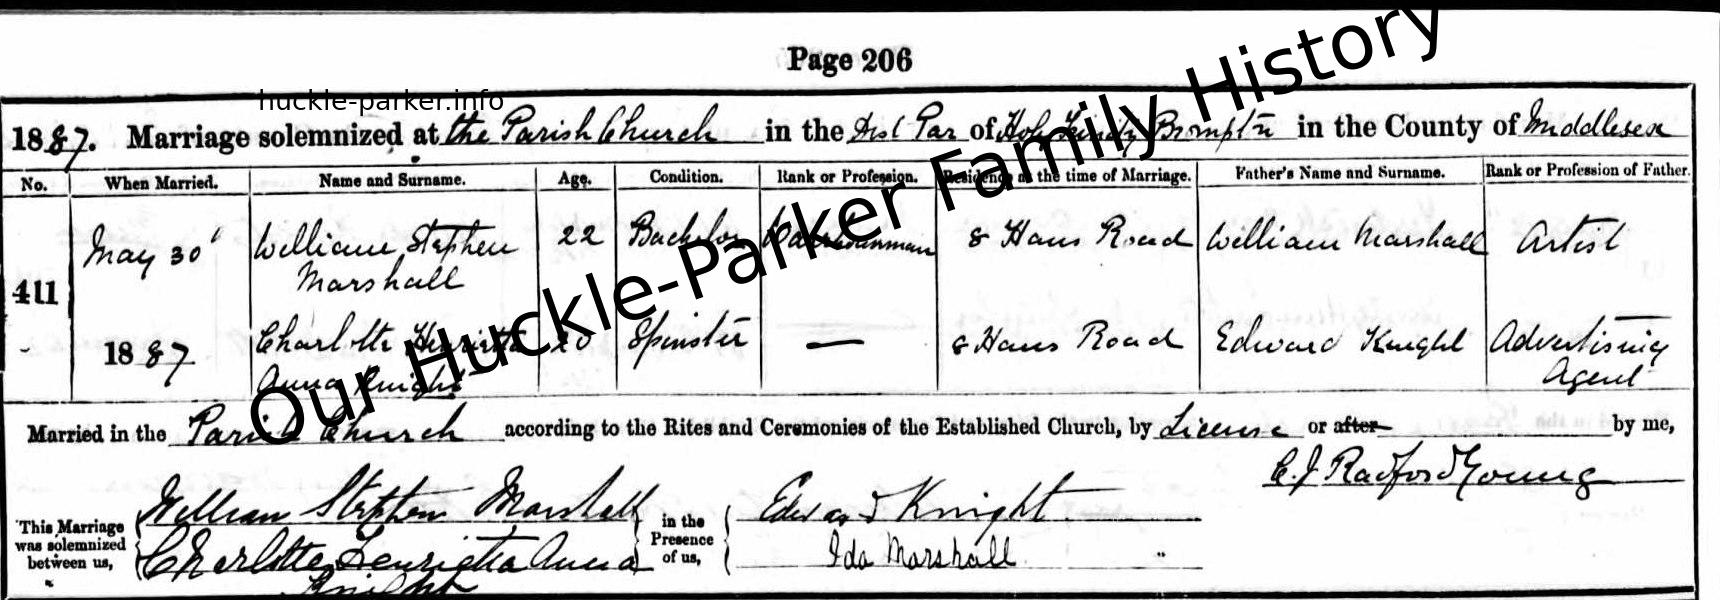 Page 206
huckle-parker.info
Our Huckle-Parker Family History
1887. Marriage solemnized at the Parish Church in the Dist Par of Holy Trinity Brompton in the County of Middlesex
No. When Married. Name and Surname. Age. Condition. Rank or Profession. Residence at the time of Marriage. Father's Name and Surname. Rank or Profession of Father.
411 May 30 William Stephen 22 Bachelor 8 Hans Road William Marshall Artist
Marshall
1887 Charlotte Henrietta 20 Spinster — 8 Hans Road Edward Knight Advertising
Anna Knight Agent
Married in the Parish Church according to the Rites and Ceremonies of the Established Church, by License or after by me,
C. J. Radford Young
This Marriage was solemnized between us, William Stephen Marshall in the Presence of us, Edward Knight
Charlotte Henrietta Anna Ida Marshall
Knight